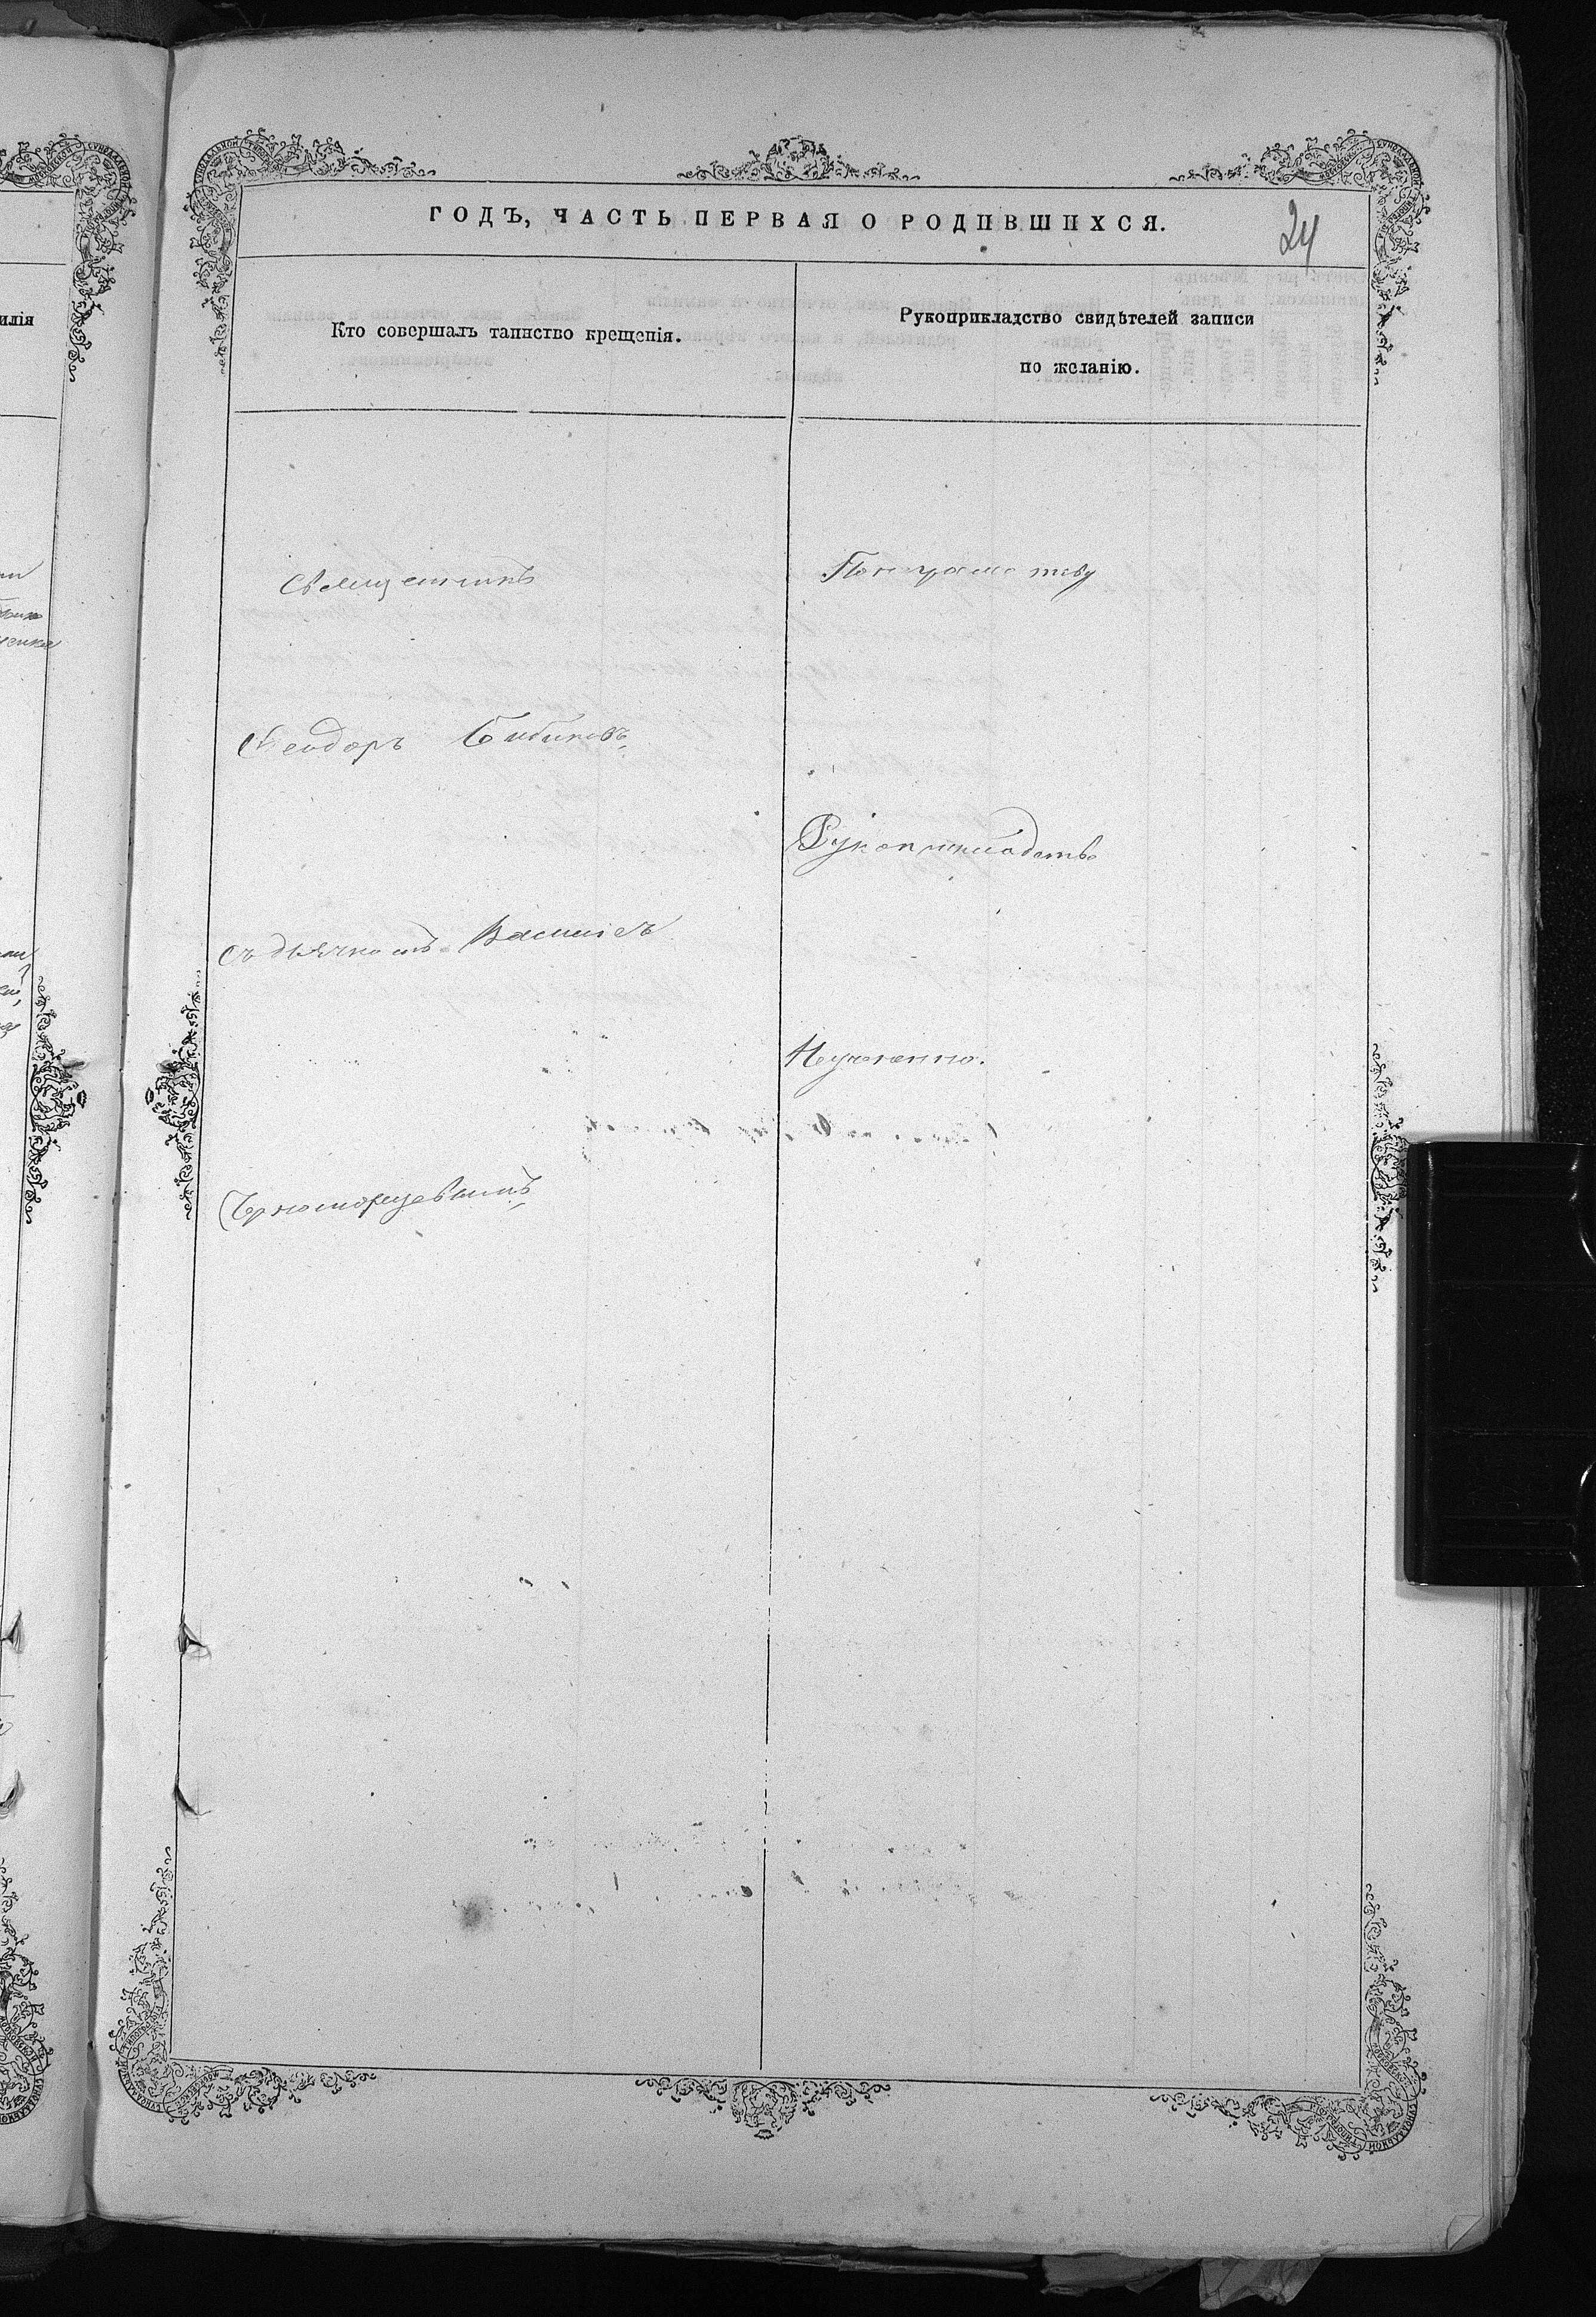 ГОДЪ, ЧАСТЬ ПЕРВАЯ О РОДИВШИХСЯ.
24
Кто совершалъ таинство крещенія.
Рукоприкладство свидѣтелей записи
по желанію.
Священникъ
Ѳеодоръ Бибиковъ
съ дьячкомъ Василіемъ
Черноморцевымъ
По неграмотству
Рукоприкладство
Неучинено.
илія